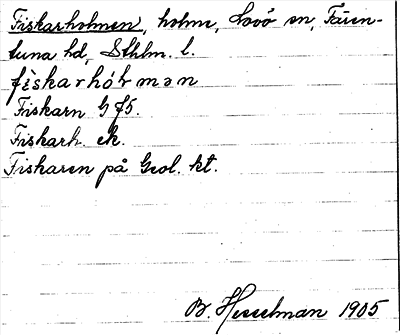 Fiskarholmen, holme, Lovö sn, Fären-
tuna hd, Sthlm. l.
Fiskarn G f5.
Fiskarh. ek.
Fiskaren på Geol. kt.
B. Hesselman 1905